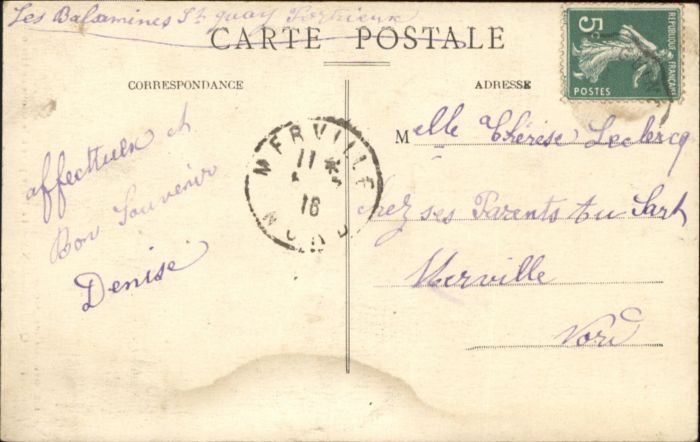 Les Balsamines St quay Portrieux
CARTE POSTALE
CORRESPONDANCE
affectueux et
Bon Souvenir
Denise
MERVILLE
11 *
16
NORD
ADRESSE
Melle Thérèse Leclercq
chez ses Parents au Sart
Merville
Nord
REPUBLIQUE FRANÇAISE
5c
POSTES